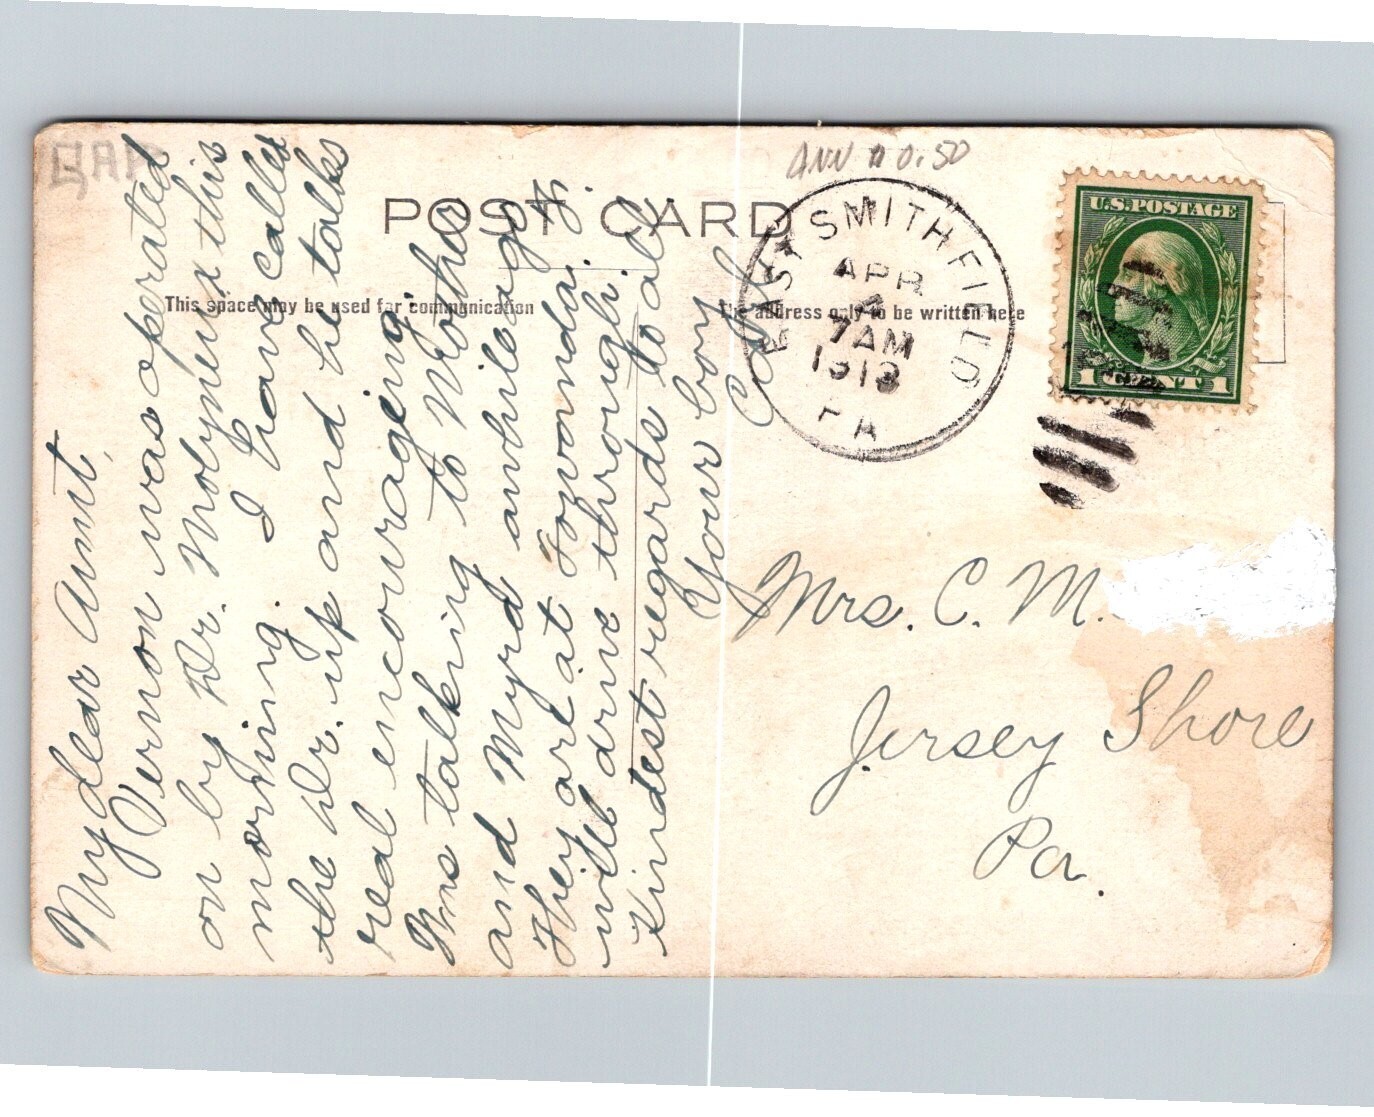 POST CARD
This space may be used for communication
The address only to be written here
EAST SMITHFIELD
APR
4
7 AM
1913
PA
U.S. POSTAGE
1 CENT 1
My dear Aunt,
Vernon was operated
on by Dr. Molyneux this
morning. I have called
the Dr. up and he talks
real encouraging
Was talking to Mother
and Myrd awhile ago.
They are at Towanda.
will drive through.
Kindest regards to all
Your boy
Mrs. C. M.
Jersey Shore
Pa.